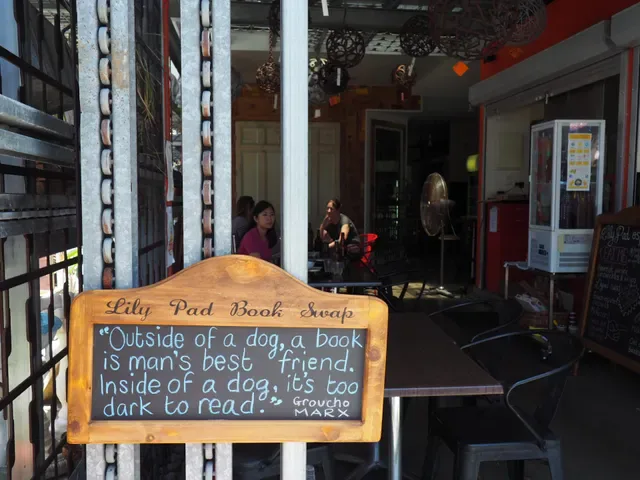 Lily Pad Book Swap
"Outside of a dog, a book
is man's best friend.
Inside of a dog, it's too
dark to read."
Groucho
MARX
Lily Pad